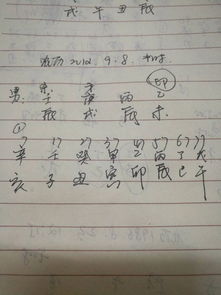 戌 午 丑 辰
历 2012. 9. 8.
印
男: 壬 庚 丙 乙
辰 戌 辰 未
①
7 17 27 37 47 57 67 77
辛 壬 癸 甲 乙 丙 丁 戊
亥 子 丑 寅 卯 辰 巳 午